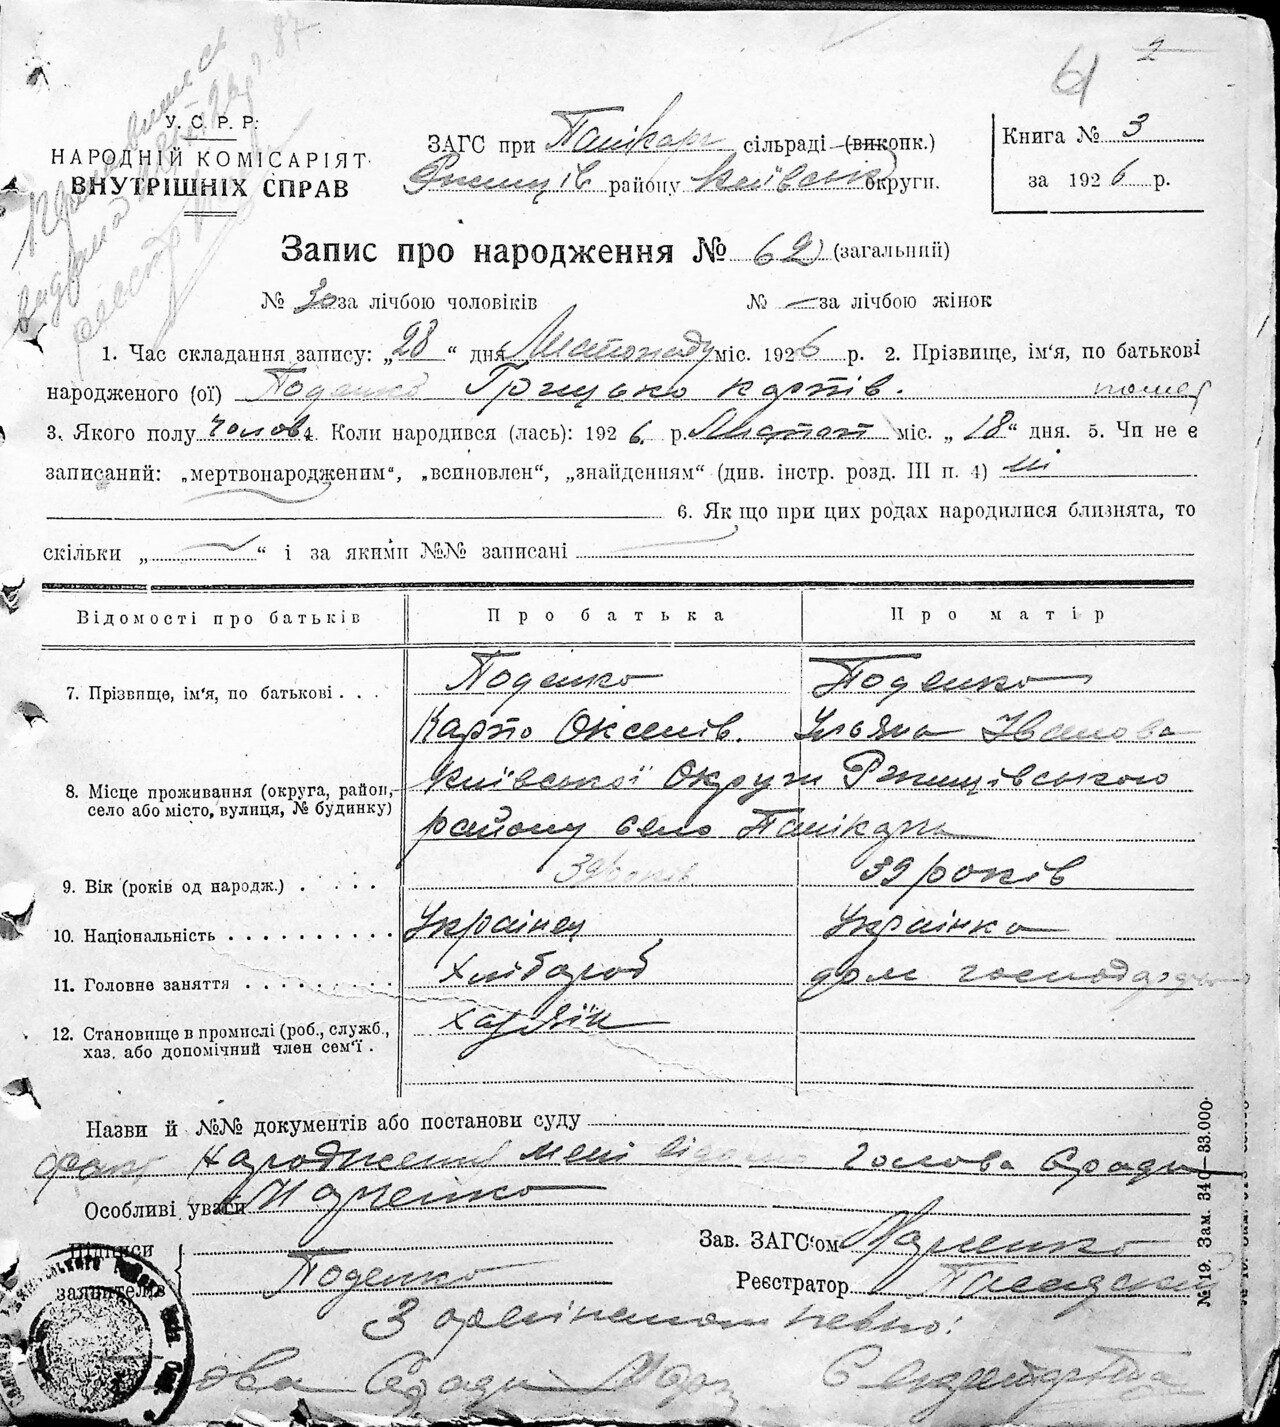 61 2
У. С. Р. Р.
НАРОДНІЙ КОМІСАРІЯТ
ВНУТРІШНІХ СПРАВ
ЗАГС при Папікарн сільраді (виконк.)
Ржищів району Київськ округи.
Книга № 3
за 1926 р.
Запис про народження № 62 (загальний)
№ 30 за лічбою чоловіків № — за лічбою жінок
1. Час складання запису: „28“ дня Листопаду міс. 1926 р. 2. Прізвище, ім'я, по батькові
народженого (ої) Поденко Грицько Карпів.
3. Якого полу Чолов. 4. Коли народився (лась): 1926 р. Листоп міс. „18“ дня. 5. Чи не є
записаний: „мертвонародженим“, „всиновлен“, „знайденням“ (див. інстр. розд. III п. 4) ні
6. Якщо при цих родах народилися близнята, то
скільки „ “ і за якими №№ записані
Відомості про батьків Про батька Про матір
7. Прізвище, ім'я, по батькові . . . Поденко Поденко
Карпо Оксенів. Ульяна Іванова
8. Місце проживання (округа, район, село або місто, вулиця, № будинку) Київської Округи Ржищівського
району село Папікарна
9. Вік (років од народж.) . . . . 39 років 39 років
10. Національність . . . . . . . . . . Українец Українка
11. Головне заняття . . . . . . . . . Хлібороб дом господар
12. Становище в промислі (роб., служб., хаз. або допомічний член сем'ї . Хазяїн
Назви й №№ документів або постанови суду
факт народження мені відомо Голова С/ради
Особливі уваги Марченко
Підписи
заявителів Поденко
Зав. ЗАГС'ом Марченко
Реєстратор
З орегіналом певно:
Голова С/ради Секретарь
№ 19. Зам. 340—33.000.